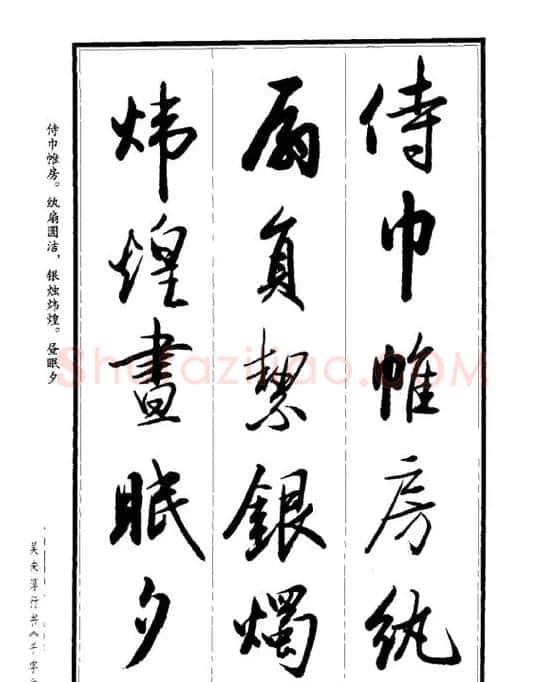 侍巾帷房纨
扇員絜銀燭
炜煌晝眠夕
侍巾帷房。纨扇圆洁，银烛炜煌。昼眠夕
吴未淳行书《千字文
Shufaziliao.COM